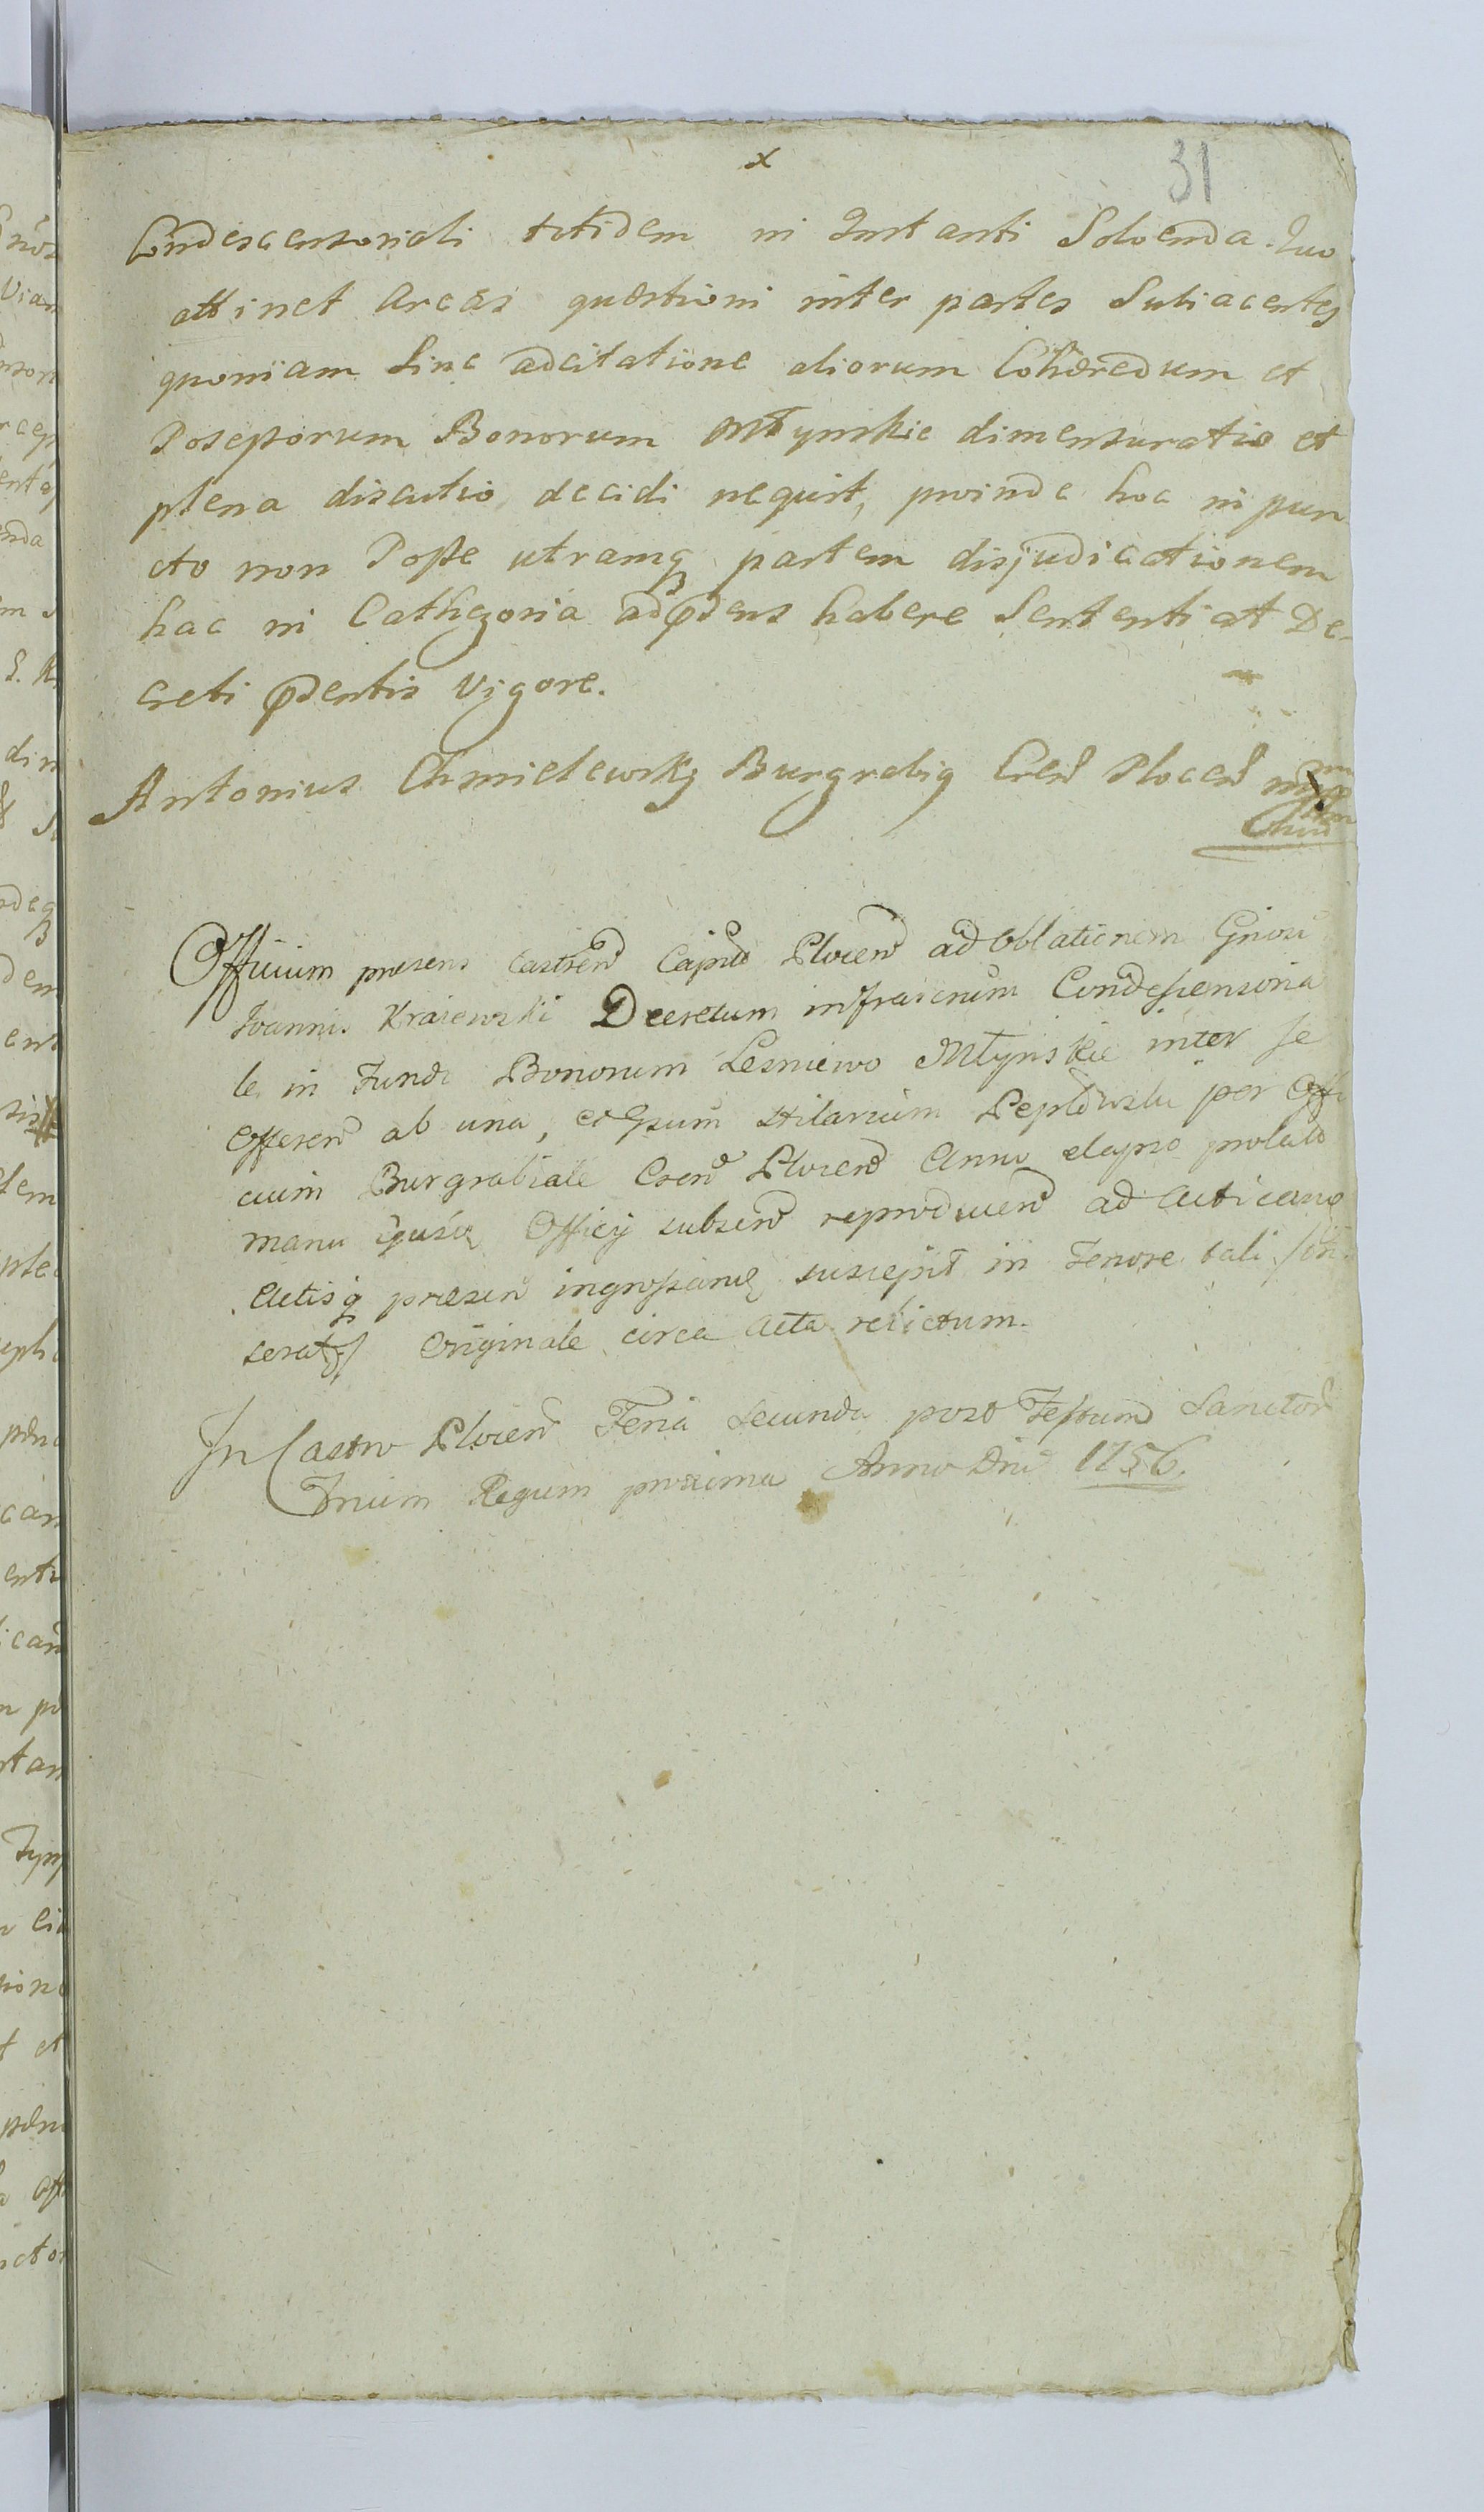 x
31
Condescensoriali totidem in Instanti Solvenda. Quo
attinet Areas quæstioni inter partes Subiacentes
quoniam Sine adcitatione aliorum Cohæredum et
Possessorum Bonorum Młynskie dimensuratio et
plena discusio decidi nequit, proinde hoc in pun
cto non Posse utramq partem disjudicationem
hac in Cathegoria adpdens habere Sententiat De-
creti pdentis Vigore.
Antonius Chmielewsky Burgrabig Cren Plocen mpp
Officium præsens Castren Capnle Plocen ad Oblationem Gnosi
Joannis Kraiewski Decretum infrascrium Condescensoria
le in Fundo Bonorum Lesniewo Młynskie inter se
Offeren ab una, et Gsum Hilarium Peplowski per Offi
cium Burgrabiale Cren Plocen Anno elapso prolato
manu ejusdem Officy subscn reproducen ad Acticano
Actisq præsen ingrossanu suscepit in Tenore tali
serat Originale circa Acta relictum.
In Castro Plocen Feria Secunda post Festum Sanctor
Trium Regum proxima Anno Dni 1756.